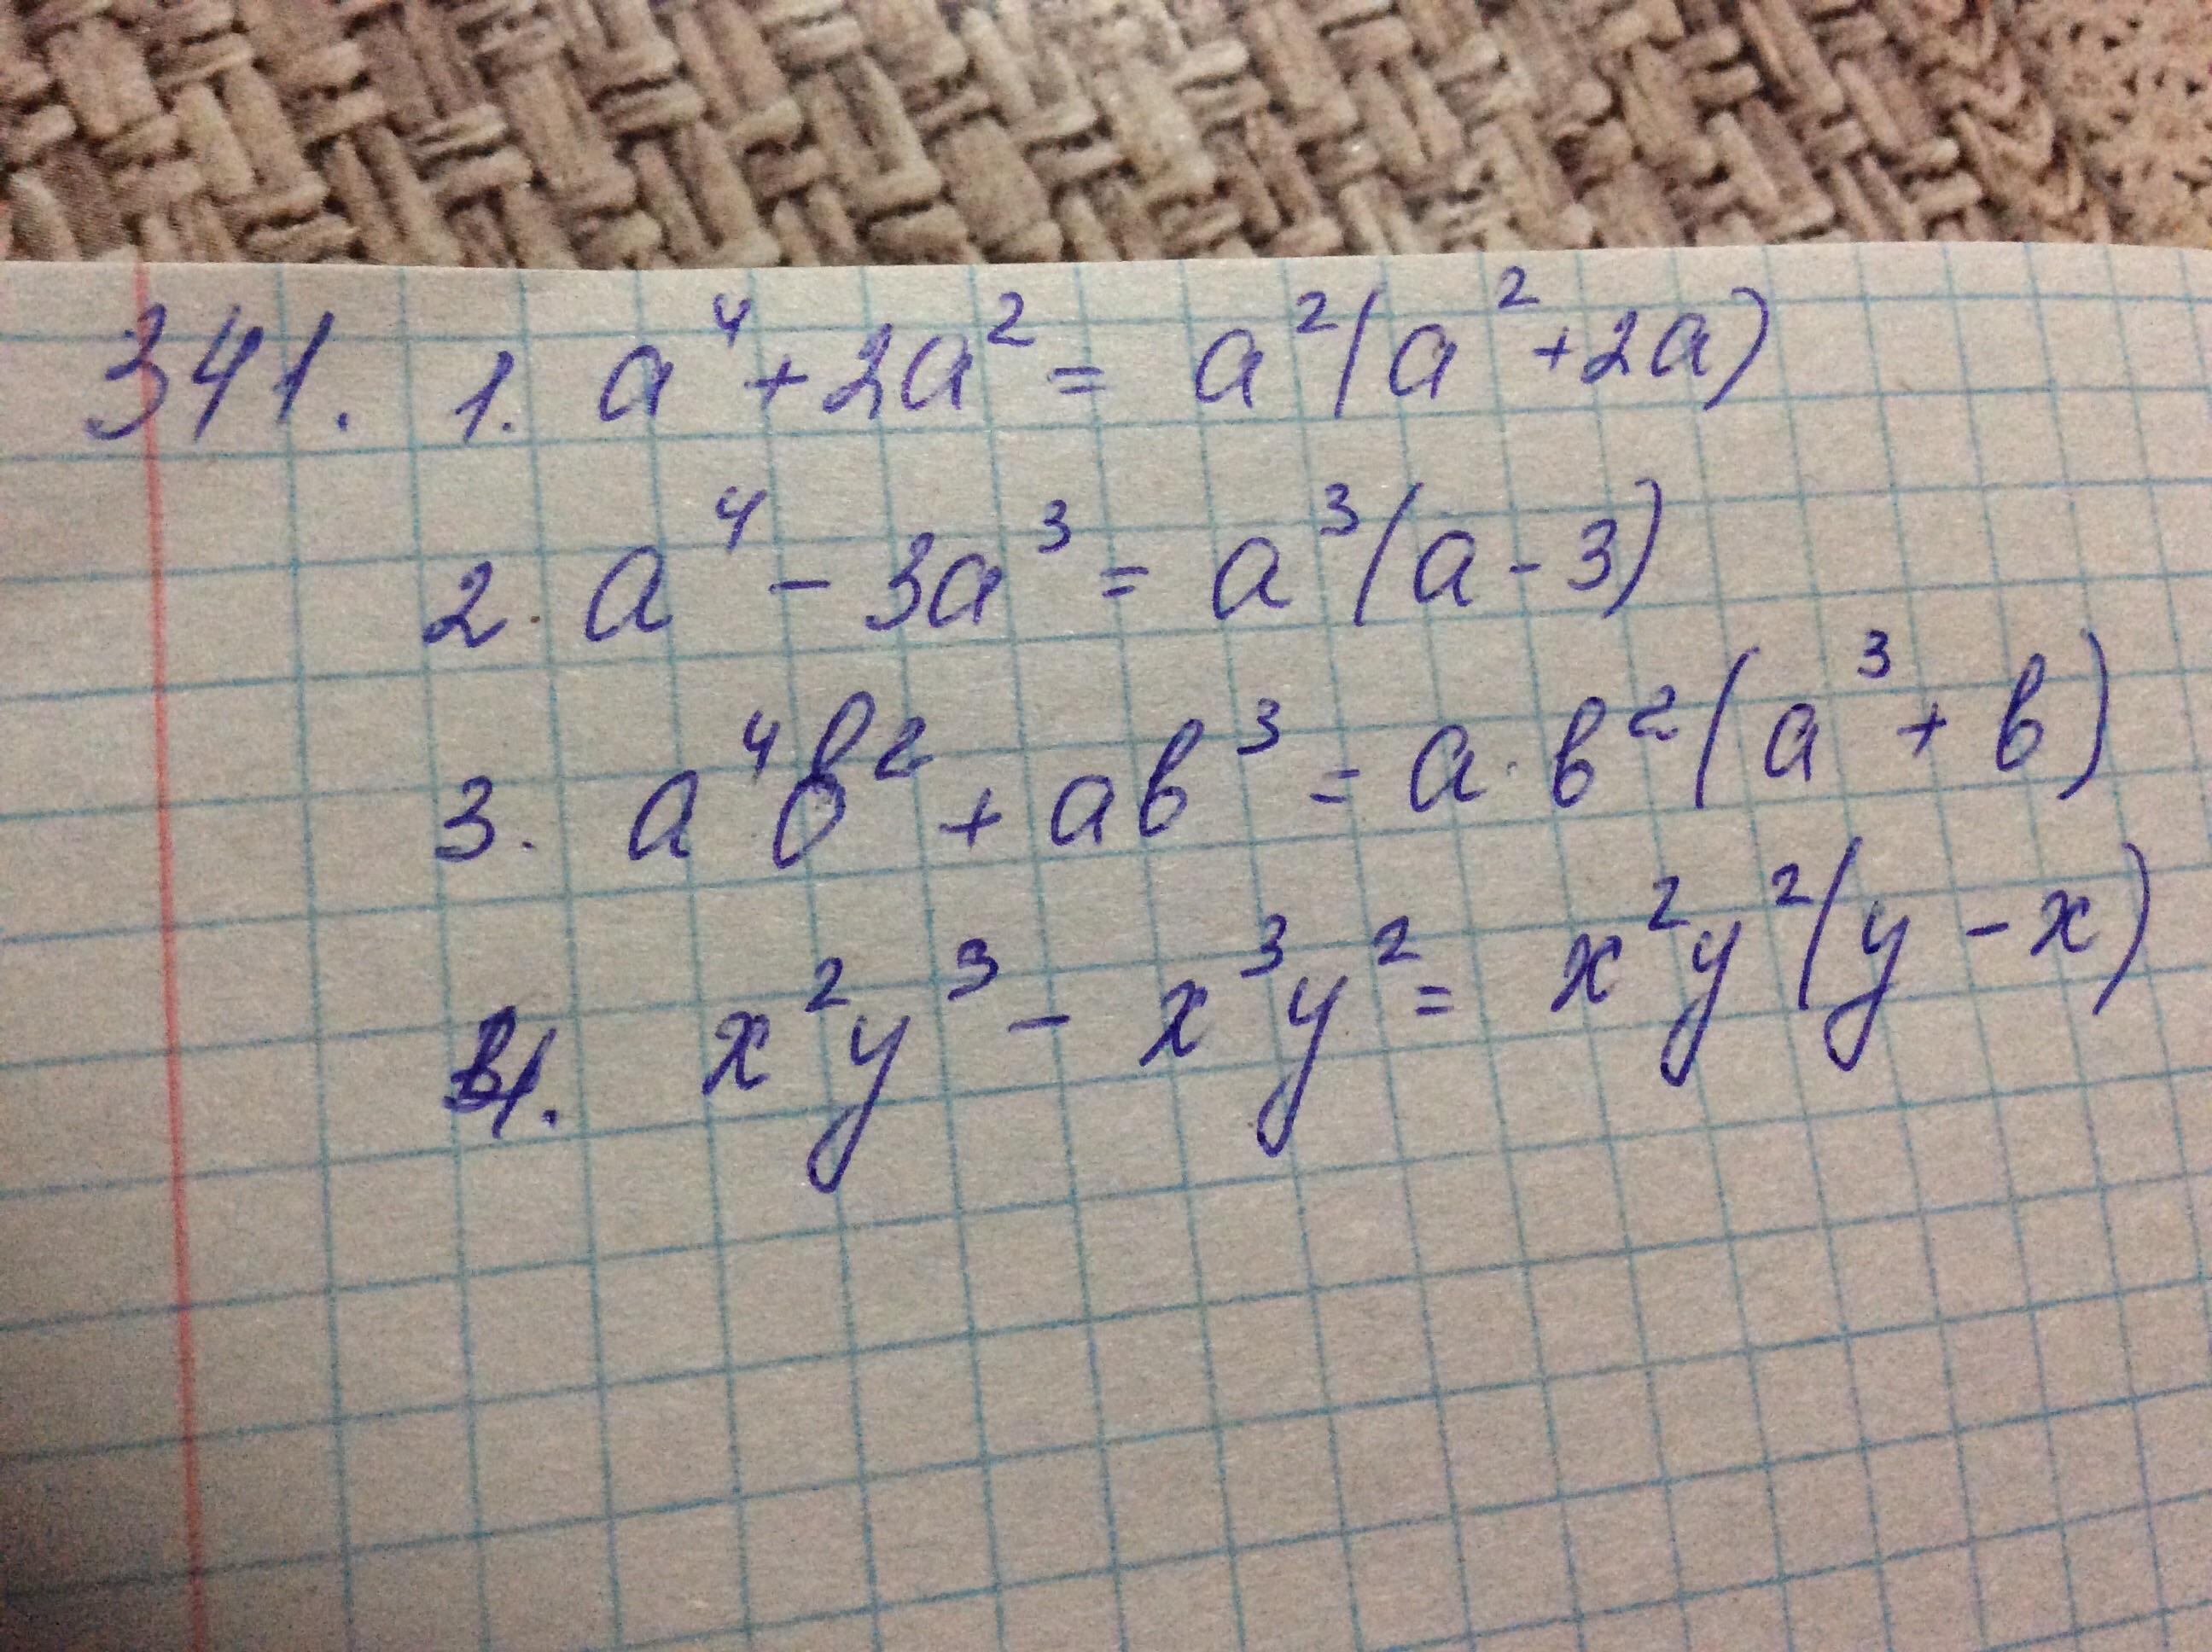 341. 1. a⁴ + 2a² = a²(a² + 2a)
2. a⁴ - 3a³ = a³(a - 3)
3. a⁴b² + ab³ = a · b²(a³ + b)
4. x²y³ - x³y² = x²y²(y - x)